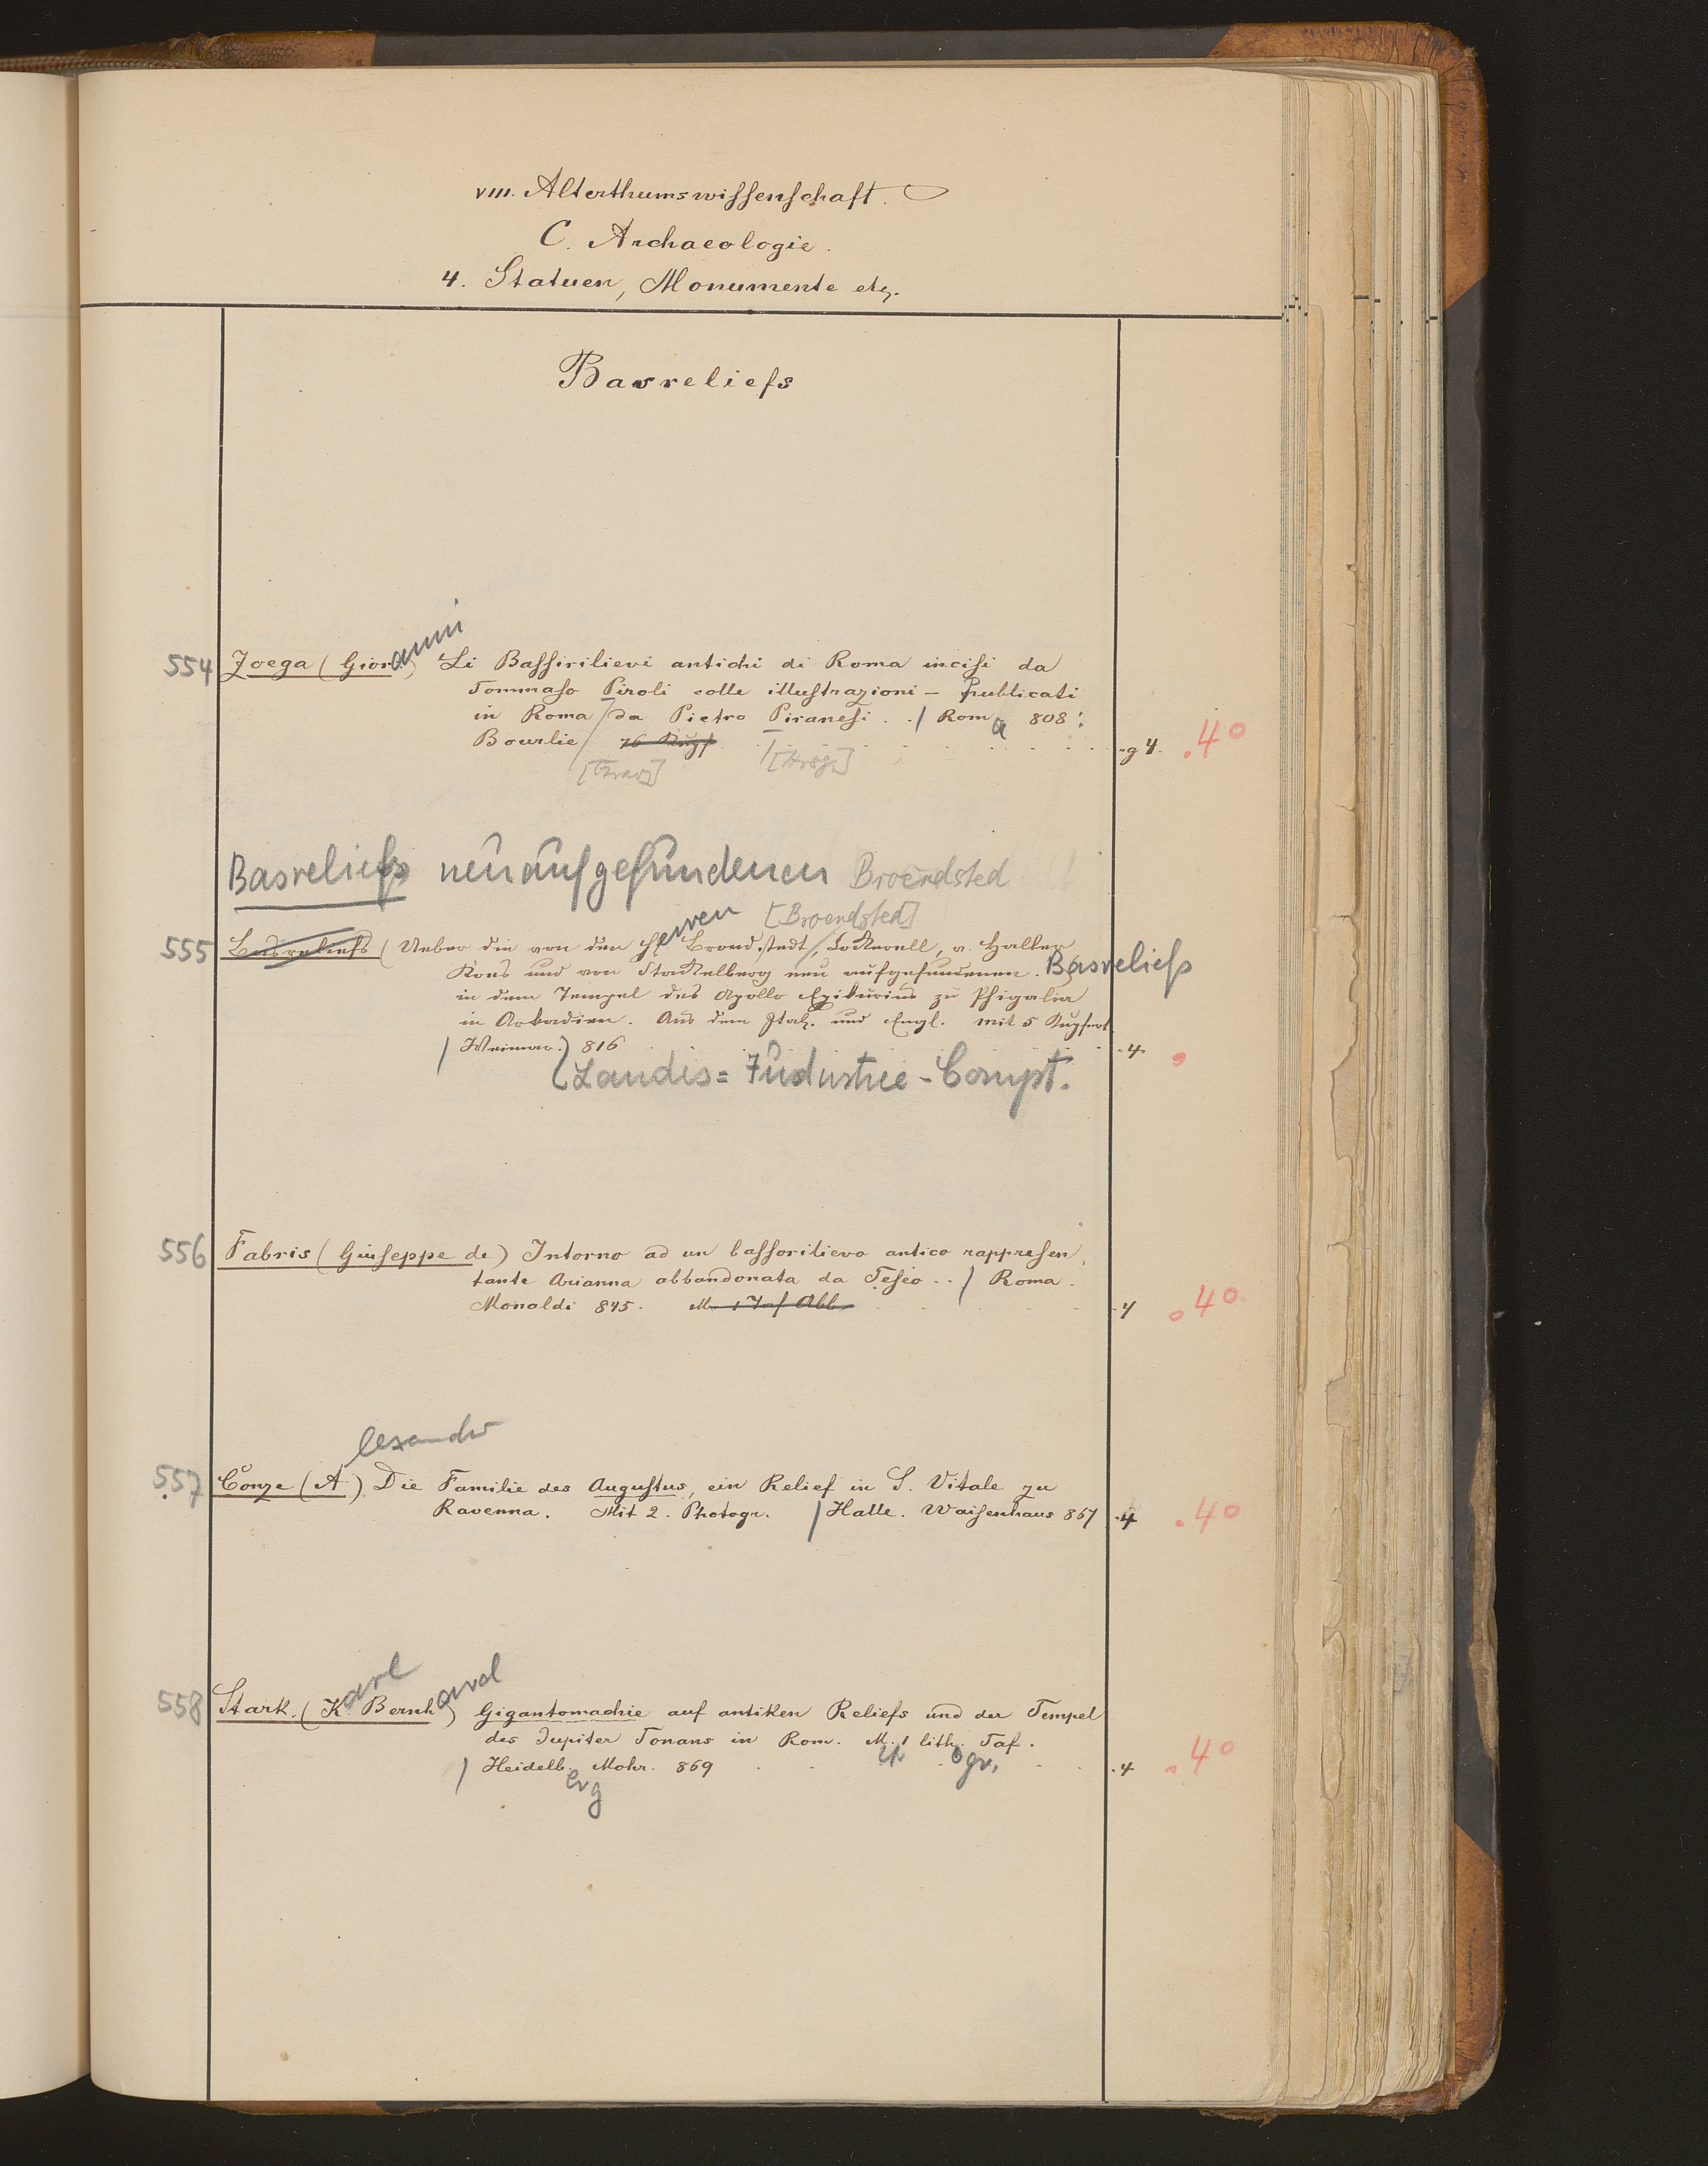 VIII. Alterthumswissenschaft.
C. Archaeologie.
4. Statuen, Monumente etc.
Basreliefs
anni
554 Zoega (Giov.) Li Bassirilievi antichi di Roma incisi da
Tommaso Piroli colle illustrazioni – publicati
in Roma / da Pietro Piranesi . . / Roma 808.
Bourlie / 76 Kupf. g 4. . 4°
[Grav] [Hrsg.]
Basreliefs neuaufgefundenen Broendsted
erren [Broendsted]
555 Basreliefs (Ueber die von den H. Brond,stedt, Cockerell, v. Haller,
Koes und von Stackelberg neu aufgefundenen. Basreliefs
in dem Tempel des Apollo Epikurius zu Phigalia
in Arkadien. Aus dem Ital. und Engl. mit 5 Kupfert.
/ Weimar.) 816 . 4
Landes=Industrie-Compt.
556 Fabris (Giuseppe de) Intorno ad un bassorilievo antico rappresen,
tante Arianna abbandonata da Teseo . . / Roma.
Monaldi 845. M. 1 Taf Abb. 4 4°
lexander
557 Conze (A) Die Familie des Augustus, ein Relief in S. Vitale zu
Ravenna. Mit 2. Photogr. / Halle. Waisenhaus 867 . 4 . 4°
arl ard
558 Stark. (K Bernh) Gigantomachie auf antiken Reliefs und der Tempel
des Jupiter Tonans in Rom. M. 1 lith. Taf.
/ Heidelb. Mohr. 869 ogr. . 4 . 4°
erg